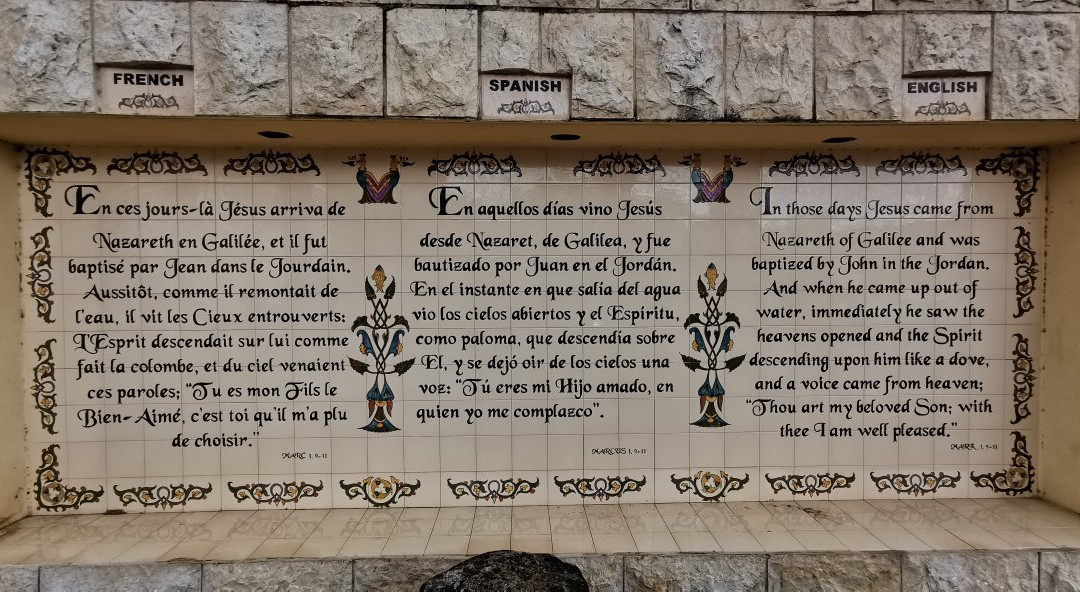 FRENCH
En ces jours-là Jésus arriva de
Nazareth en Galilée, et il fut
baptisé par Jean dans le Jourdain.
Aussitôt, comme il remontait de
l'eau, il vit les Cieux entrouverts:
L'Esprit descendait sur lui comme
fait la colombe, et du ciel venaient
ces paroles; "Tu es mon Fils le
Bien-Aimé, c'est toi qu'il m'a plu
de choisir."
MARC 1, 9-11
SPANISH
En aquellos días vino Jesús
desde Nazaret, de Galilea, y fue
bautizado por Juan en el Jordán.
En el instante en que salía del agua
vio los cielos abiertos y el Espíritu,
como paloma, que descendía sobre
El, y se dejó oir de los cielos una
voz: "Tú eres mi Hijo amado, en
quien yo me complazco".
MARCUS 1, 9-11
ENGLISH
In those days Jesus came from
Nazareth of Galilee and was
baptized by John in the Jordan.
And when he came up out of
water, immediately he saw the
heavens opened and the Spirit
descending upon him like a dove,
and a voice came from heaven;
"Thou art my beloved Son; with
thee I am well pleased."
MARK 1, 9-11